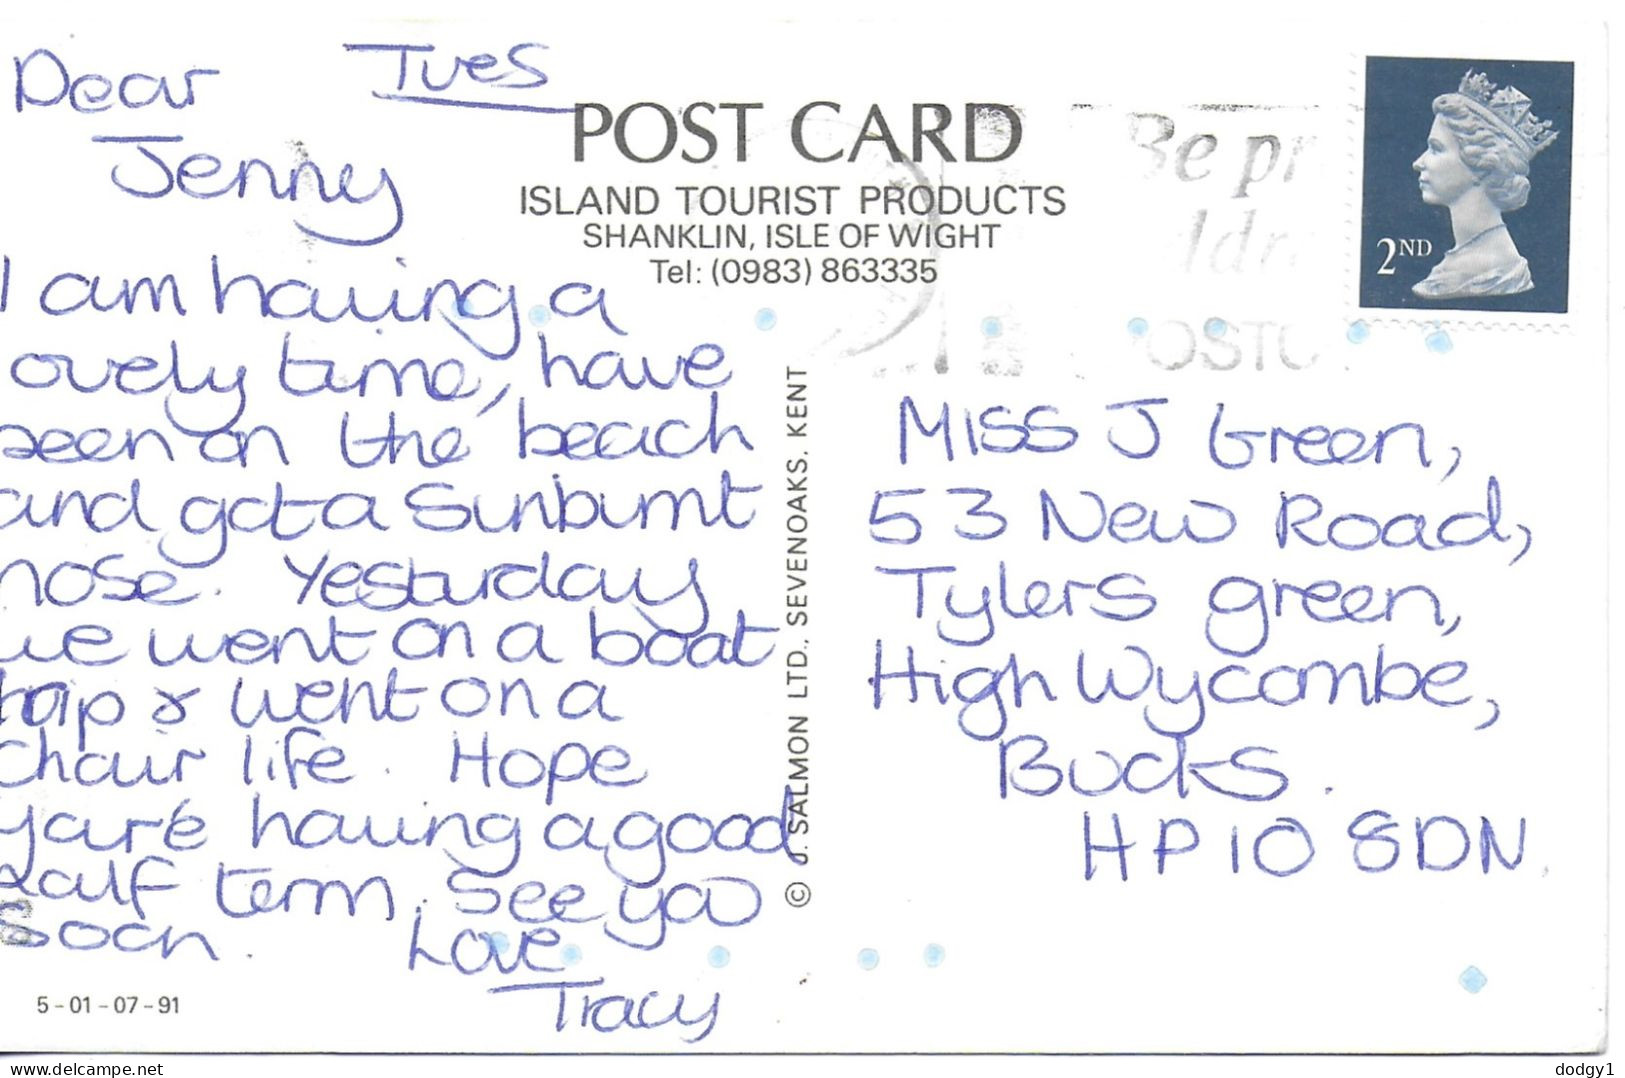 Tues
Dear
Jenny
I am having a
lovely time, have
been on the beach
and got a Sunburnt
nose. Yesturday
we went on a boat
trip & went on a
Chair life. Hope
yare having a good
half term. See you
Soon.
Love
Tracy
5-01-07-91
POST CARD
ISLAND TOURIST PRODUCTS
SHANKLIN, ISLE OF WIGHT
Tel: (0983) 863335
© J. SALMON LTD., SEVENOAKS, KENT
Be pr
2ND
Miss J Green,
53 New Road,
Tylers green,
High Wycombe,
Bucks.
HP10 8DN.
delcampe.net
dodgy1